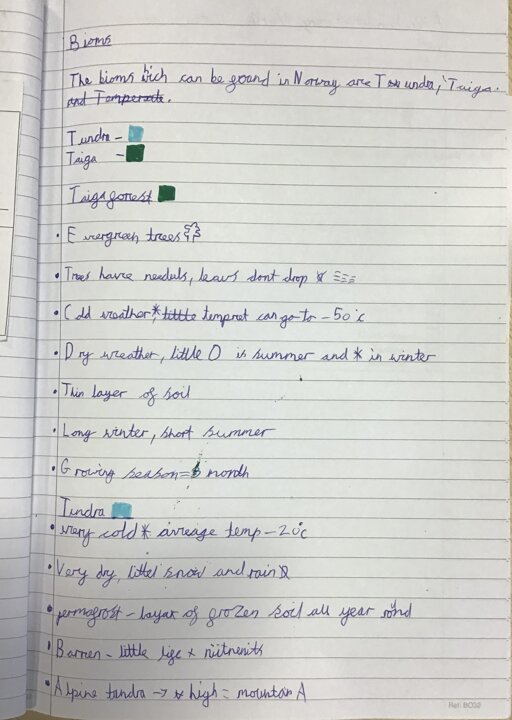 Bioms
The bioms wich can be found in Norway are Tundra, Taiga.
and Temperate.
Tundra -
Taiga -
Taiga forest
• Evergreen trees
• Trees have needels, leavs dont drop
• Cold weather*, little tempret can go to -50°c
• Dry weather, little 0 is summer and * in winter
• Thin layer of soil
• Long winter, short summer
• Growing season = 6 month
Tundra
• very cold * avreage temp -20°c
• Very dry, littel snow and rain
• permafrost - layar of frozen soil all year rond
• Barren - little life + nutrients
• Alpine tundra → high = mountain
Ref: BC02